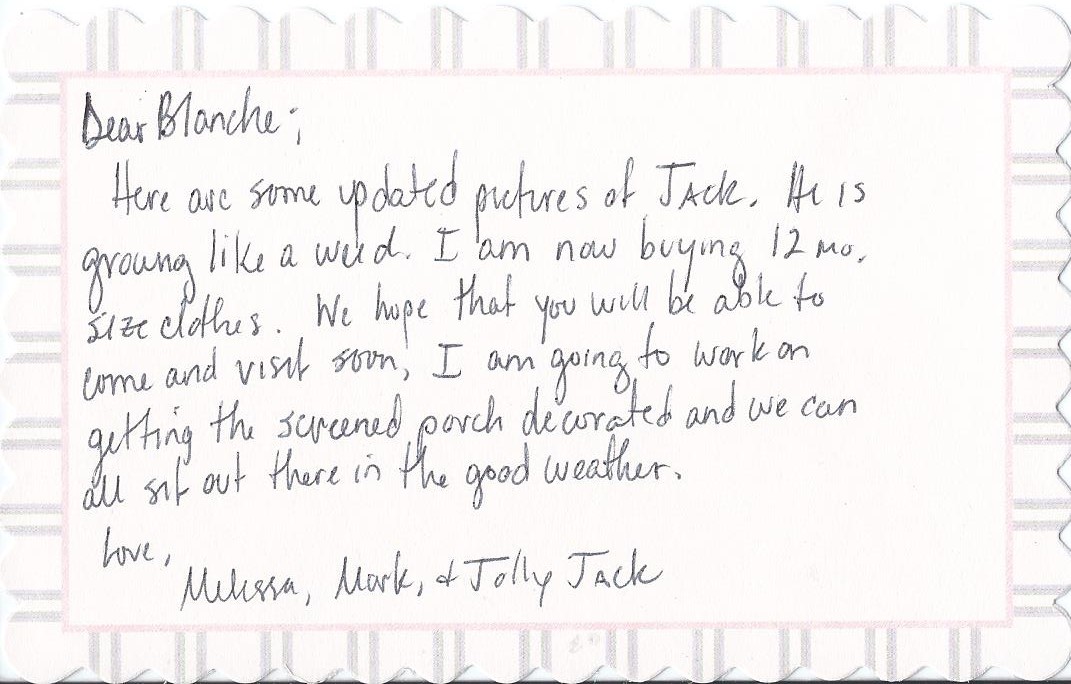 Dear Blanche;
Here are some updated pictures of JAck. He is
growing like a weed. I am now buying 12 mo.
size clothes. We hope that you will be able to
come and visit soon, I am going to work on
getting the screened porch decorated and we can
all sit out there in the good weather.
Love,
Melissa, Mark, & Jolly Jack